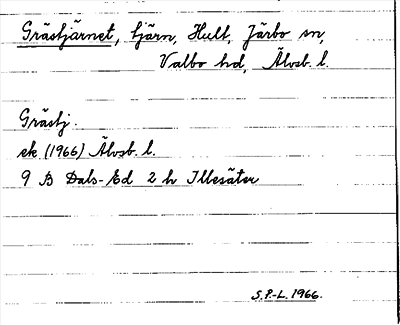 Grästjärnet, tjärn, Hult, Järbo sn,
Valbo hd, Älvsb. l.
Grästj.
ek. (1966) Älvsb. l.
9 B Dals-Ed 2 h Illesäter
S.P.-L. 1966.